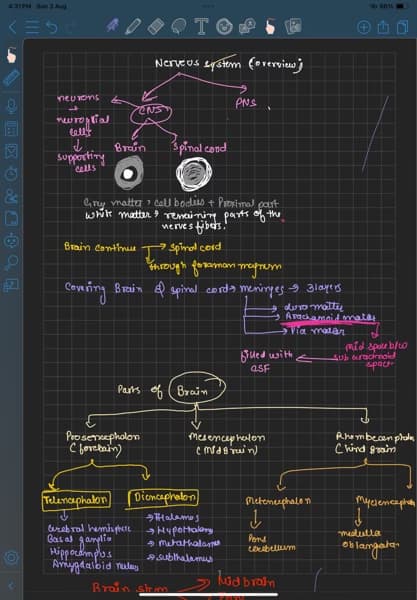 4:31 PM Sun 3 Aug
Nervous system (overview)
neurons
neuroglial cells
supporting cells
CNS
PNS
Brain
Spinal cord
Grey matter, cell bodies + Proximal part
White matter, remaining parts of the
nerves fibers.
Brain continue
spinal cord
through foraman magnum
Covering Brain & spinal cord
meninges
3 layers
dura matter
Arachanoid mater
Pia mater
Mid space b/w
sub arachnoid
space
filled with
CSF
Parts of Brain
Prosencephalon
(forebrain)
Mesencephalon
(Mid Brain)
Rhombecenphalon
(hind Brain)
Telencephalon
Diencephalon
Metencephalon
Myelencephalon
Cerebral hemisphere
Basal ganglia
Hippocampus
Amygdaloid nucleus
Thalamus
Hypothalamus
Metathalamus
subthalamus
Pons
cerebellum
medulla
oblangata
Brain stem
Mid brain